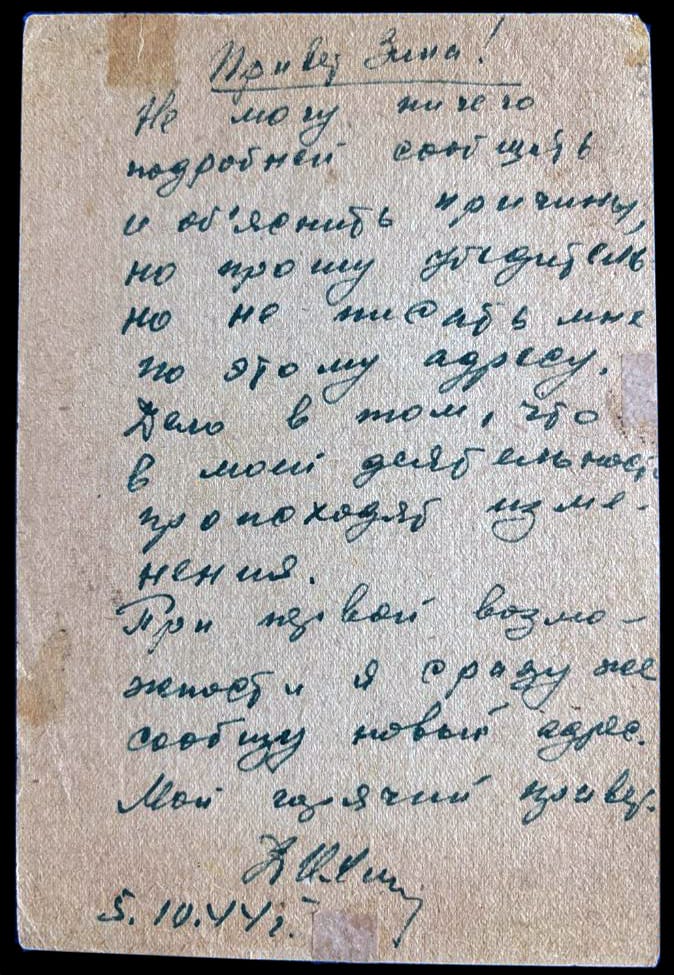 Привет Зина!
Не могу ничего
подробней сообщить
и об'яснить причины,
но прошу убедитель
но не писать мне
по этому адресу.
Дело в том, что
в моей деятельности
происходят изме-
нения.
При первой возмо-
жности я сразу же
сообщу новый адрес.
Мой горячий привет.
5.10.44 г.